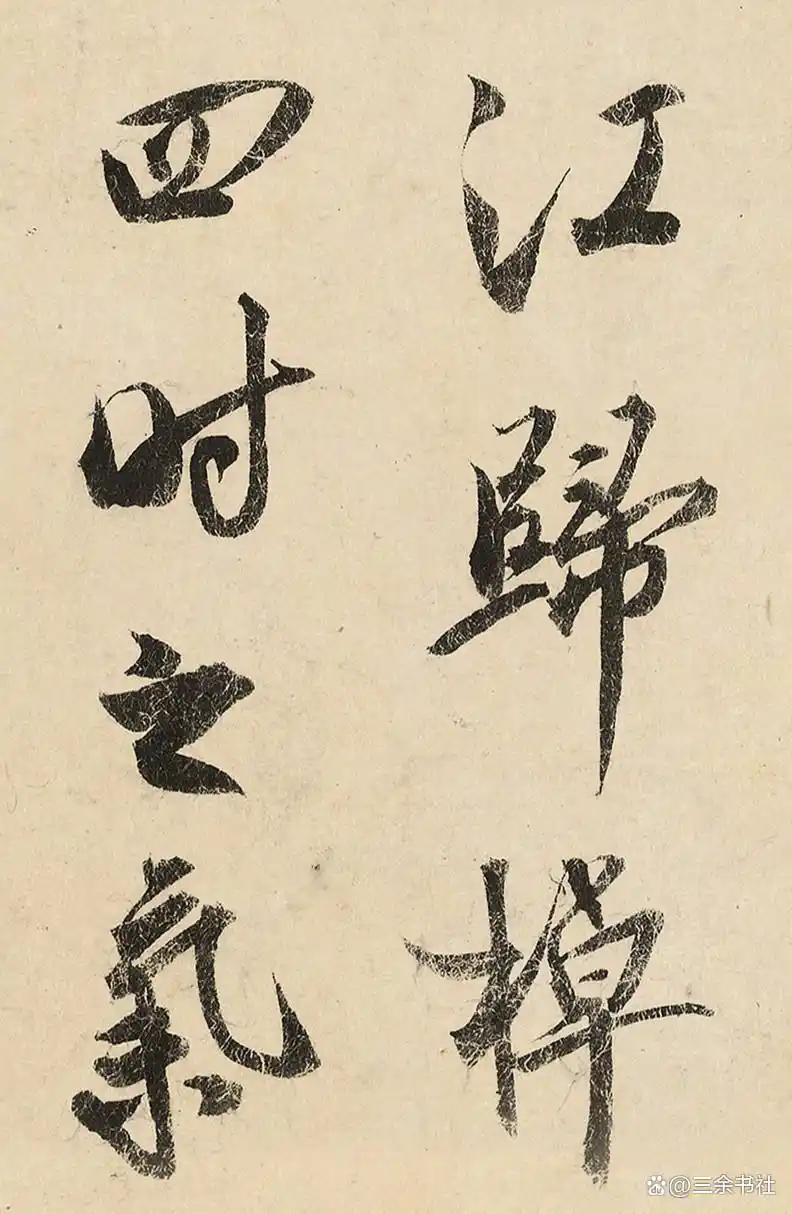 江歸棹
四时之氣
@三余书社